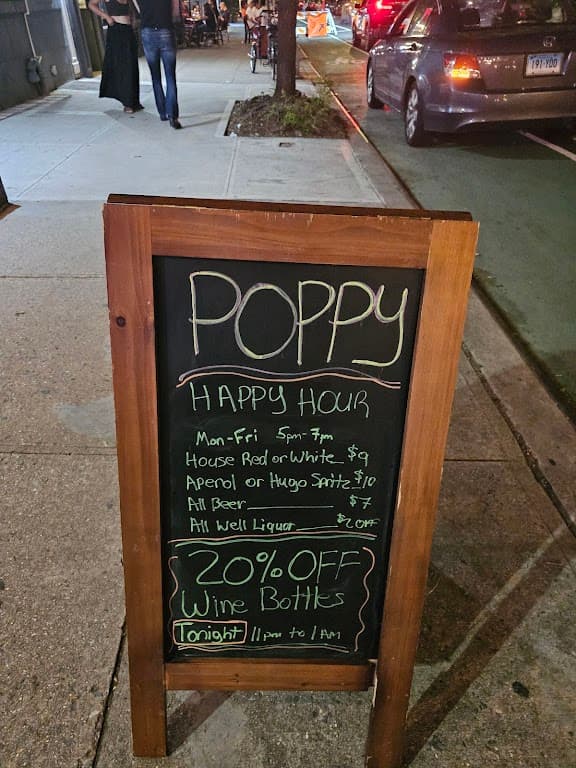 POPPY
HAPPY HOUR
Mon-Fri 5pm-7pm
House Red or White $9
Aperol or Hugo Spritz $10
All Beer $7
All Well Liquor $2 OFF
20% OFF
Wine Bottles
Tonight 11pm to 1AM
191·YDD